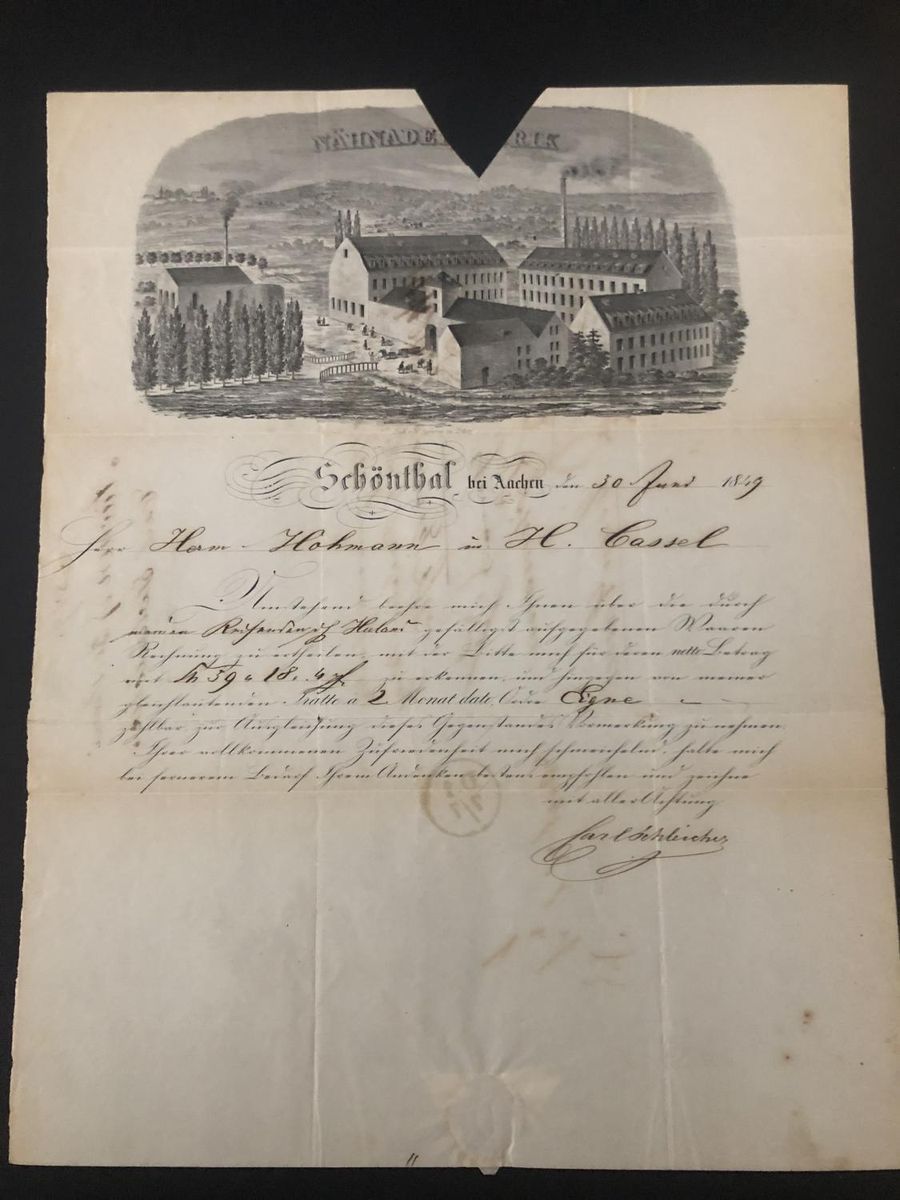 NÄHNADE RIK
Schönthal bei Aachen den 30 Juni 1849
Herr Herm. Hohmann in H. Cassel
Umstehend beehre mich Ihnen über die durch
meinen Reisenden gefälligst aufgegebenen Waaren
Rechnung zu ertheilen, mit der Bitte mich für deren netto Betrag
mit 59 18. 4 zu erkennen, und hingegen von meiner
gleichlautenden Tratte a 2 Monat dato, Ordre Eigne
zahlbar, zur Ausgleichung dieses Gegenstandes Vormerkung zu nehmen.
Ihrer vollkommenen Zufriedenheit mich schmeichelnd, halte mich
bei fernerem Bedarf Ihrem Andenken bestens empfohlen und zeichne
mit aller Achtung
Carl Schleicher